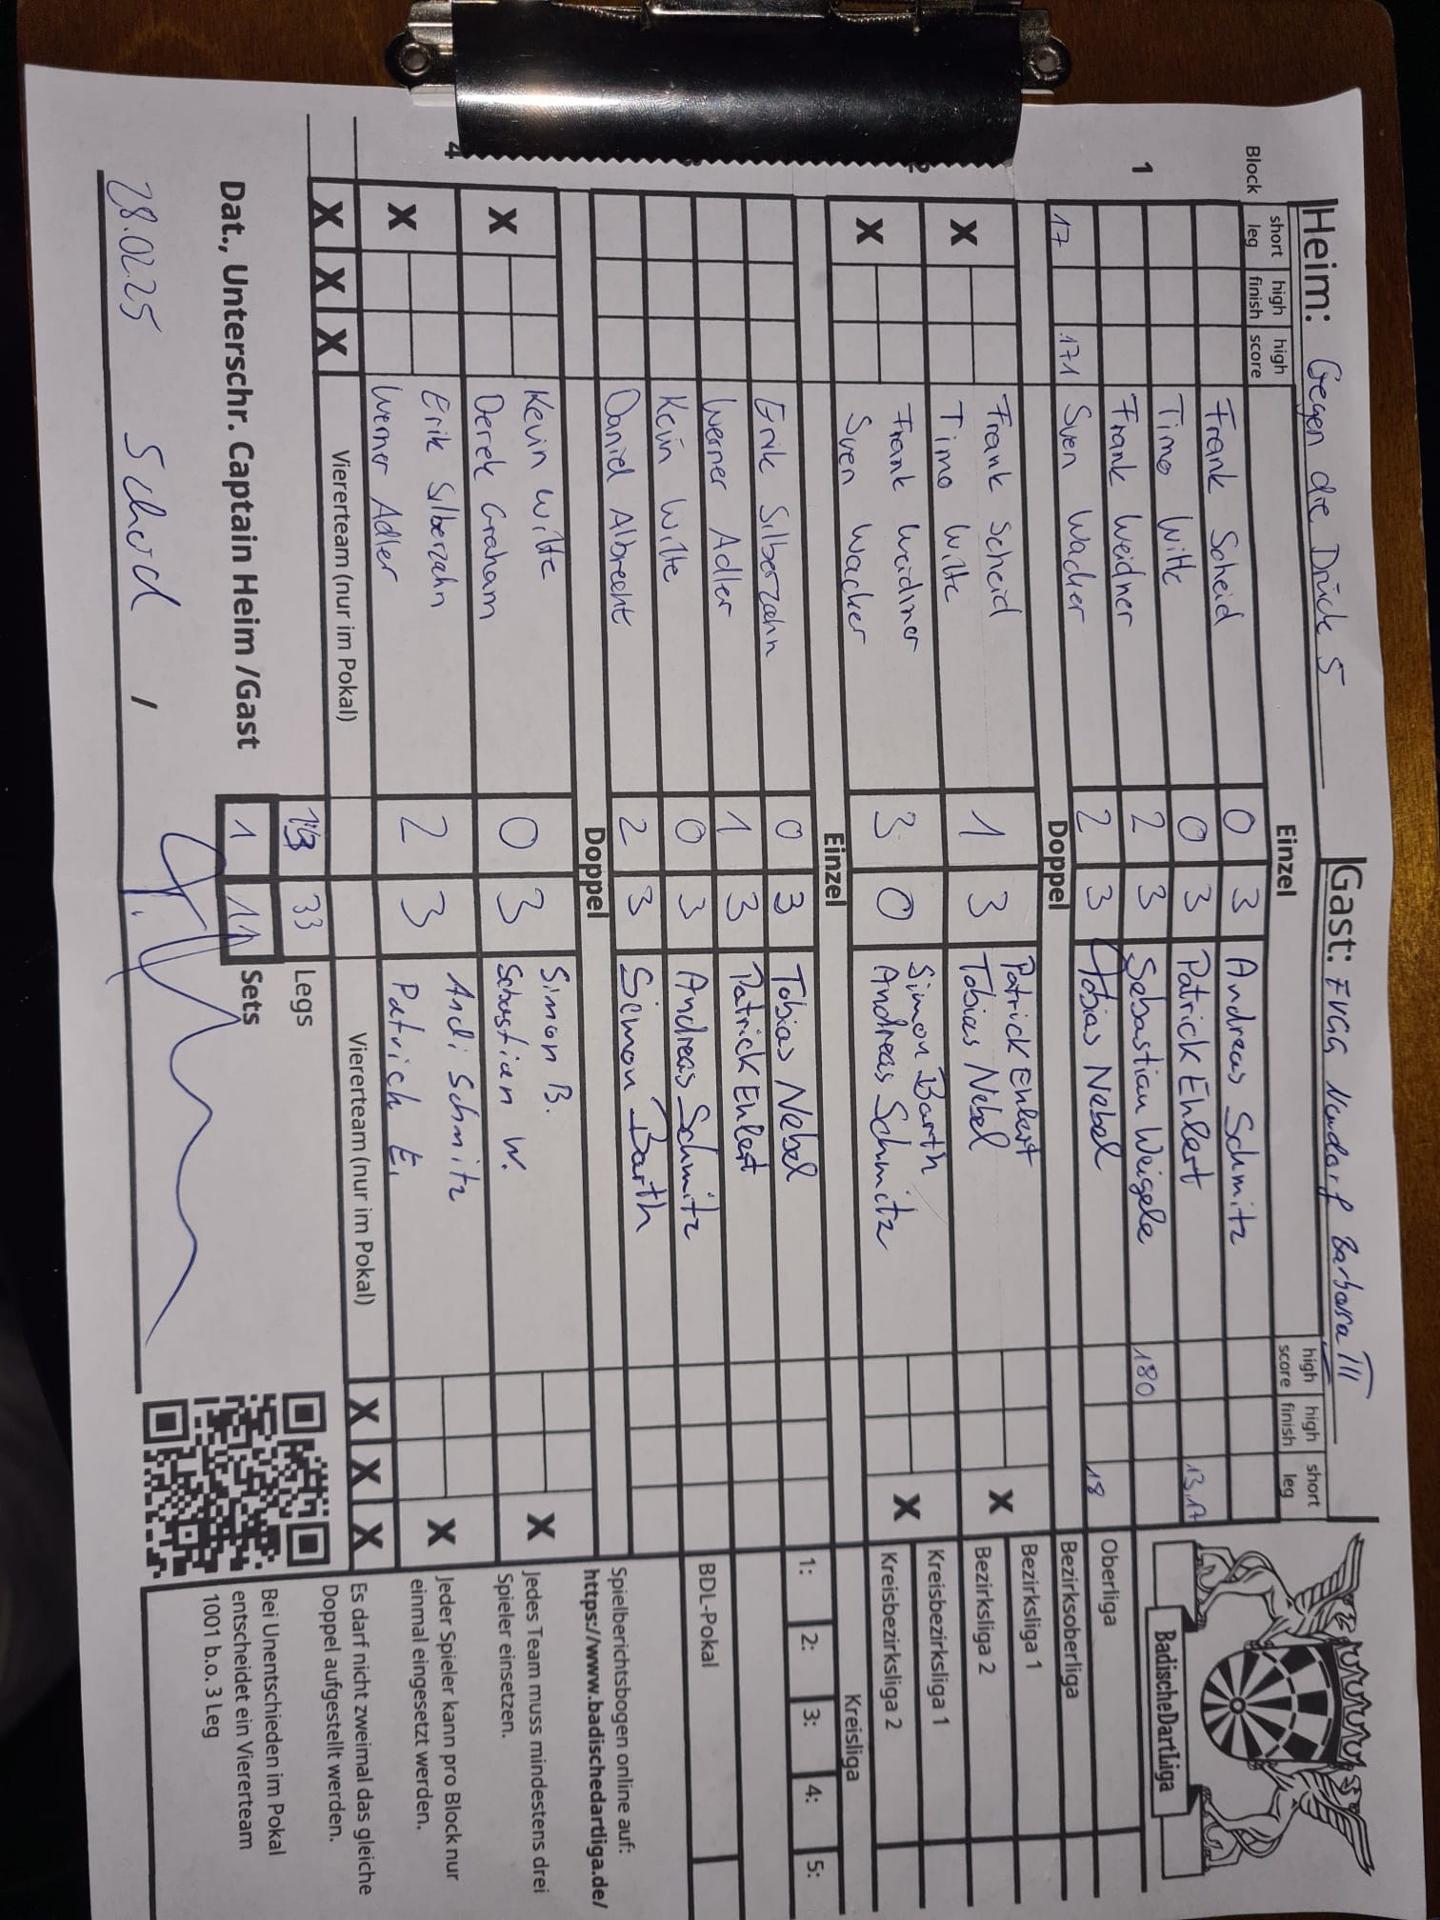 Heim: Gegen die Drück 5 Gast: FVgg Neudorf Barbona III
Block short leg high finish high score Einzel high score high finish short leg
1
Frank Scheid 0 3 Andreas Schmitz
Timo Witte 0 3 Patrick Ehlert 13,17
Frank Weidner 2 3 Sebastian Weigele 180
17 171 Sven Wacker 2 3 Tobias Nebel 18
Doppel
X Frank Scheid 1 3 Patrick Ehlert X
Timo Witte Tobias Nebel
X Frank Weidner 3 0 Simon Barth X
Sven Wacker Andreas Schmitz
Einzel
Erik Silberzahn 0 3 Tobias Nebel
Werner Adler 1 3 Patrick Ehlert
Kevin Witte 0 3 Andreas Schmitz
Daniel Albrecht 2 3 Simon Barth
Doppel
4
X Kevin Witte 0 3 Simon B. X
Derek Graham Sebastian W.
X Erik Silberzahn 2 3 Andi Schmitz X
Werner Adler Patrick E.
X X X Viererteam (nur im Pokal) Viererteam (nur im Pokal) X X X
13 33 Legs
Dat., Unterschr. Captain Heim /Gast 1 11 Sets
28.02.25 /
BadischeDartLiga
Oberliga
Bezirksoberliga
Bezirksliga 1
Bezirksliga 2
Kreisbezirksliga 1
Kreisbezirksliga 2
Kreisliga
1: 2: 3: 4: 5:
BDL-Pokal
Spielberichtsbogen online auf:
https://www.badischedartliga.de/
Jedes Team muss mindestens drei
Spieler einsetzen.
Jeder Spieler kann pro Block nur
einmal eingesetzt werden.
Es darf nicht zweimal das gleiche
Doppel aufgestellt werden.
Bei Unentschieden im Pokal
entscheidet ein Viererteam
1001 b.o. 3 Leg